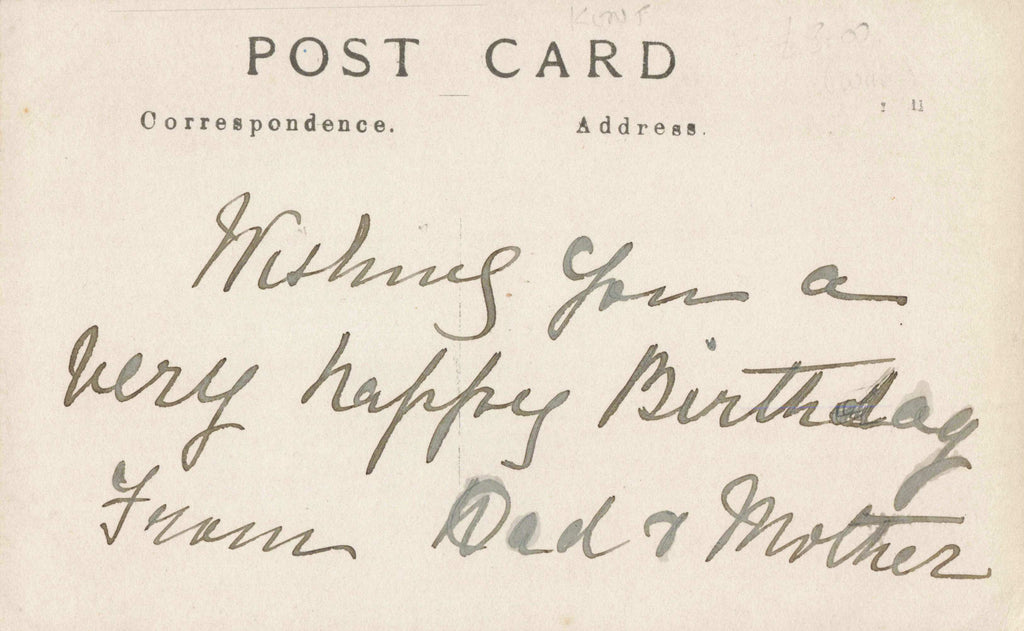 KENT
POST CARD
Correspondence. Address.
Wishing You a
very happy Birthday
From Dad & Mother